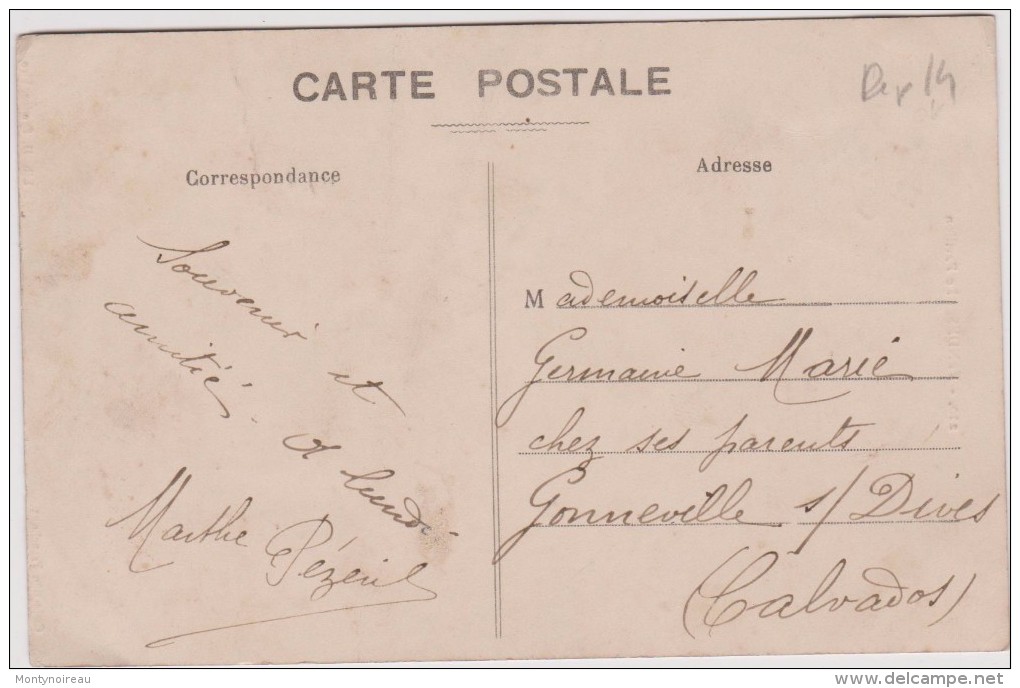 CARTE POSTALE
Dep 14
Correspondance
Souvenir et
amitié. A lundi
Marthe Pézeril
Adresse
Mademoiselle
Germaine Marié
chez ses parents
Gonneville s/ Dives
(Calvados)
Montynoireau
delcampe.net